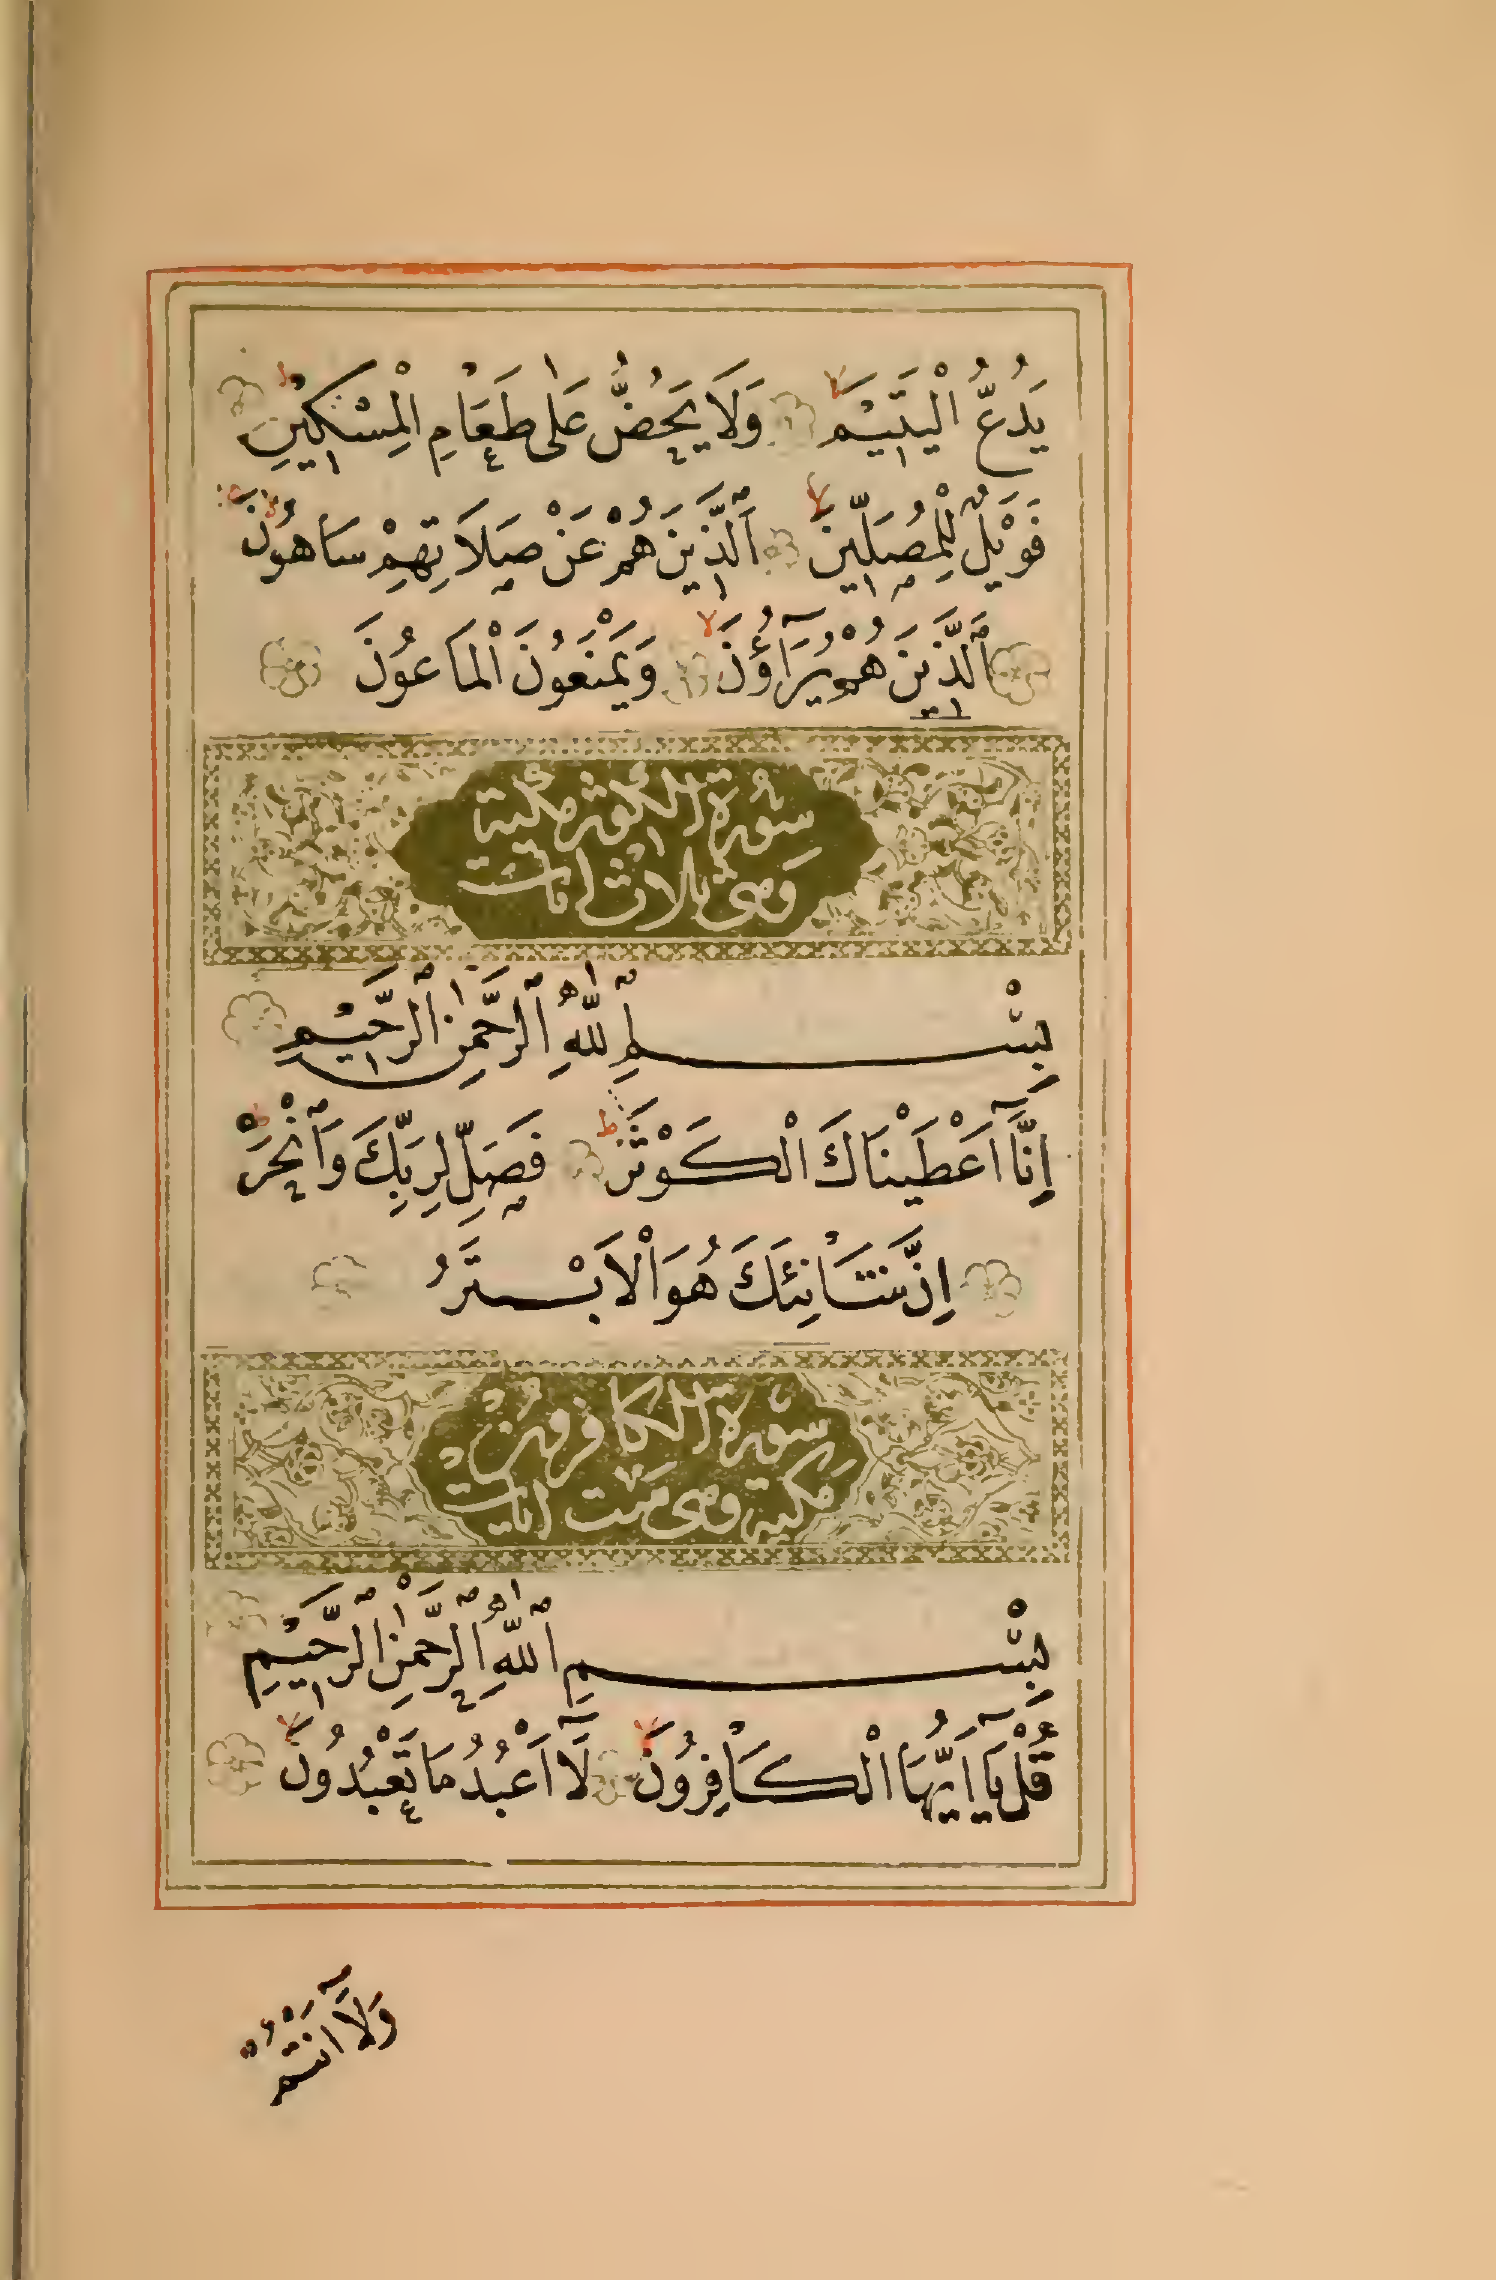 يَدُعُّ الْيَتِيْمَ ۙ وَلَا يَحُضُّ عَلٰى طَعَامِ الْمِسْكِيْنِ ط
فَوَيْلٌ لِلْمُصَلِّينَ ۙ اَلَّذِينَ هُمْ عَنْ صَلَاتِهِمْ سَاهُونَ ۙ
اَلَّذِينَ هُمْ يُرَآؤُنَ ۙ وَيَمْنَعُونَ الْمَاعُونَ
سُورَةُ الْكَوْثَرِ مَكِّيَّة
وَهِيَ ثَلَاثُ اٰيَات
بِسْمِ اللّٰهِ الرَّحْمٰنِ الرَّحِيْمِ
اِنَّآ اَعْطَيْنَاكَ الْكَوْثَرَ ط فَصَلِّ لِرَبِّكَ وَانْحَرْ ط
اِنَّ شَانِئَكَ هُوَ الْاَبْتَرُ
سُورَةُ الْكَافِرُونَ
مَكِّيَّة وَهِيَ سِتُّ اٰيَات
بِسْمِ اللّٰهِ الرَّحْمٰنِ الرَّحِيْمِ
قُلْ يَآ اَيُّهَا الْكَافِرُونَ ۙ لَآ اَعْبُدُ مَا تَعْبُدُونَ ۙ
وَلَآ اَنْتُمْ